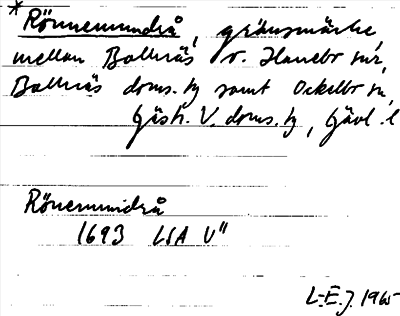 * Rönnemundrå, gränsmärke,
mellan Bollnäs o. Hanebo snr,
Bollnäs doms. hg samt Ockelbo sn,
Gästr. V. doms. hg, Gävl. l
Rönemundrå
1693 LSA V"
L-E.J. 1965